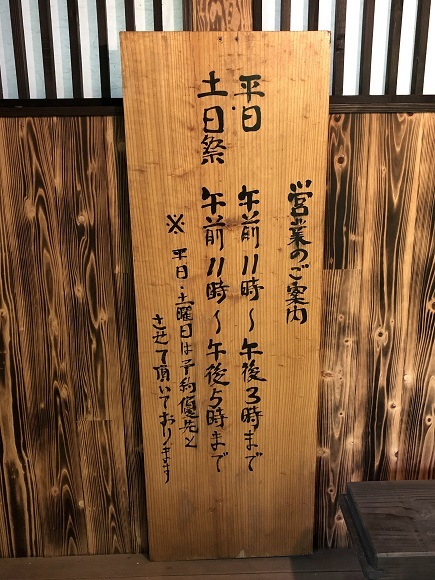 営業のご案内
平日 午前11時～午後3時まで
土日祭 午前11時～午後5時まで
※平日・土曜日は予約優先と
させて頂いております